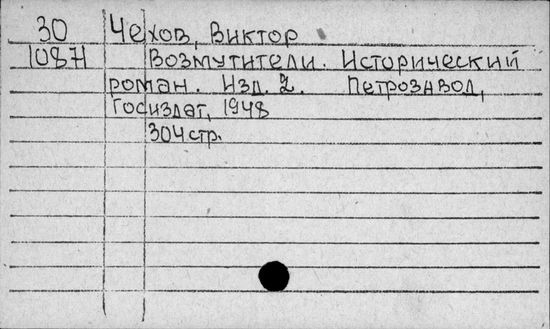 30 Чехов, Виктор
10871 Возмутители. Исторический
роман. Изд. 2. Петрозавод,
Госиздат, 1948
304 стр.